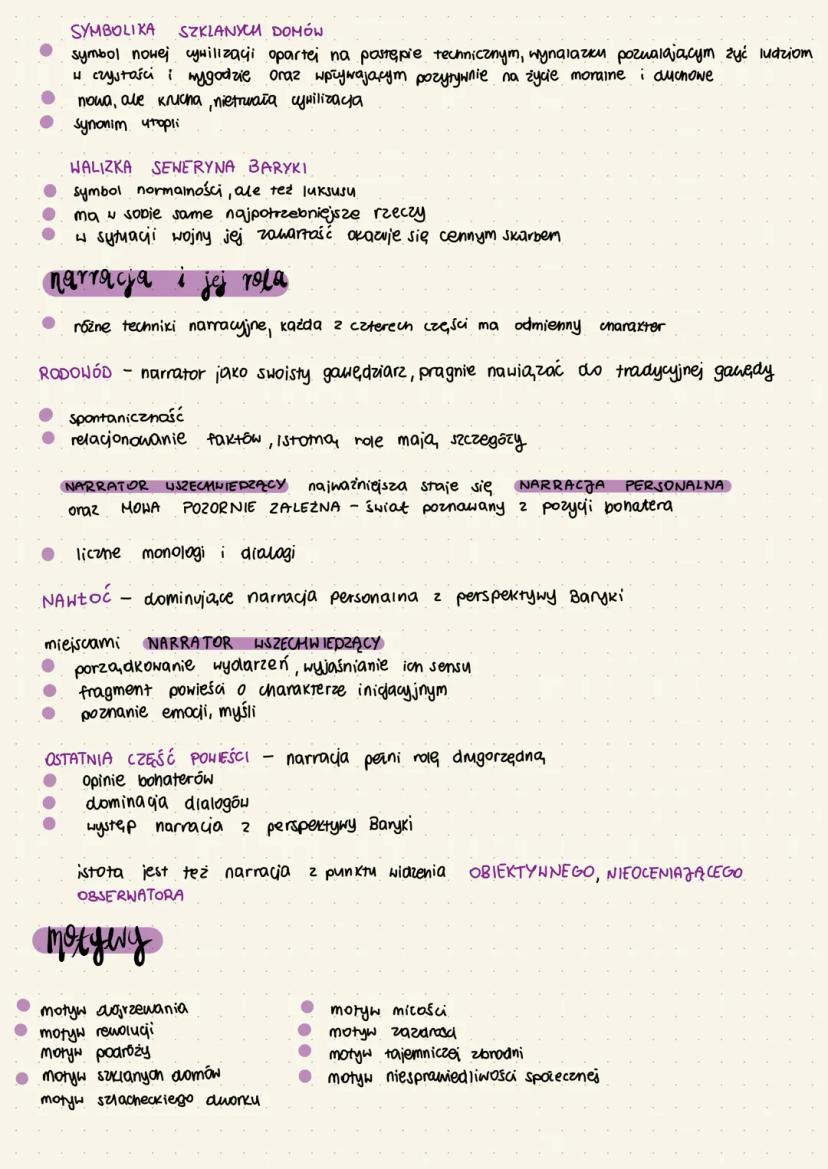 SYMBOLIKA SZKLANYCH DOMÓW
symbol nowej cywilizacji opartej na postępie technicznym, wynalazku pozwalającym żyć ludziom
w czystości i wygodzie oraz wpływającym pozytywnie na życie moralne i duchowe
nowa, ale krucha, nietrwała cywilizacja
synonim utopii
WALIZKA SEWERYNA BARYKI
symbol normalności, ale też luksusu
ma w sobie same najpotrzebniejsze rzeczy
w sytuacji wojny jej zawartość okazuje się cennym skarbem
narracja i jej rola
różne techniki narracyjne, każda z czterech części ma odmienny charakter
RODOWÓD – narrator jako swoisty gawędziarz, pragnie nawiązać do tradycyjnej gawędy
spontaniczność
relacjonowanie faktów, istotną rolę mają szczegóły
NARRATOR WSZECHWIEDZĄCY najważniejsza staje się NARRACJA PERSONALNA
oraz MOWA POZORNIE ZALEŻNA – świat poznawany z pozycji bohatera
liczne monologi i dialogi
NAWŁOĆ – dominujące narracja personalna z perspektywy Baryki
miejscami NARRATOR WSZECHWIEDZĄCY
porządkowanie wydarzeń, wyjaśnianie ich sensu
fragment powieści o charakterze inicjacyjnym
poznanie emocji, myśli
OSTATNIA CZĘŚĆ POWIEŚCI – narracja pełni rolę drugorzędną
opinie bohaterów
dominacja dialogów
występ narracja z perspektywy Baryki
istota jest też narracja z punktu widzenia OBIEKTYWNEGO, NIEOCENIAJĄCEGO
OBSERWATORA
motywy
motyw dojrzewania
motyw rewolucji
motyw podróży
motyw szklanych domów
motyw szlacheckiego dworku
motyw miłości
motyw zazdrości
motyw tajemniczej zbrodni
motyw niesprawiedliwości społecznej